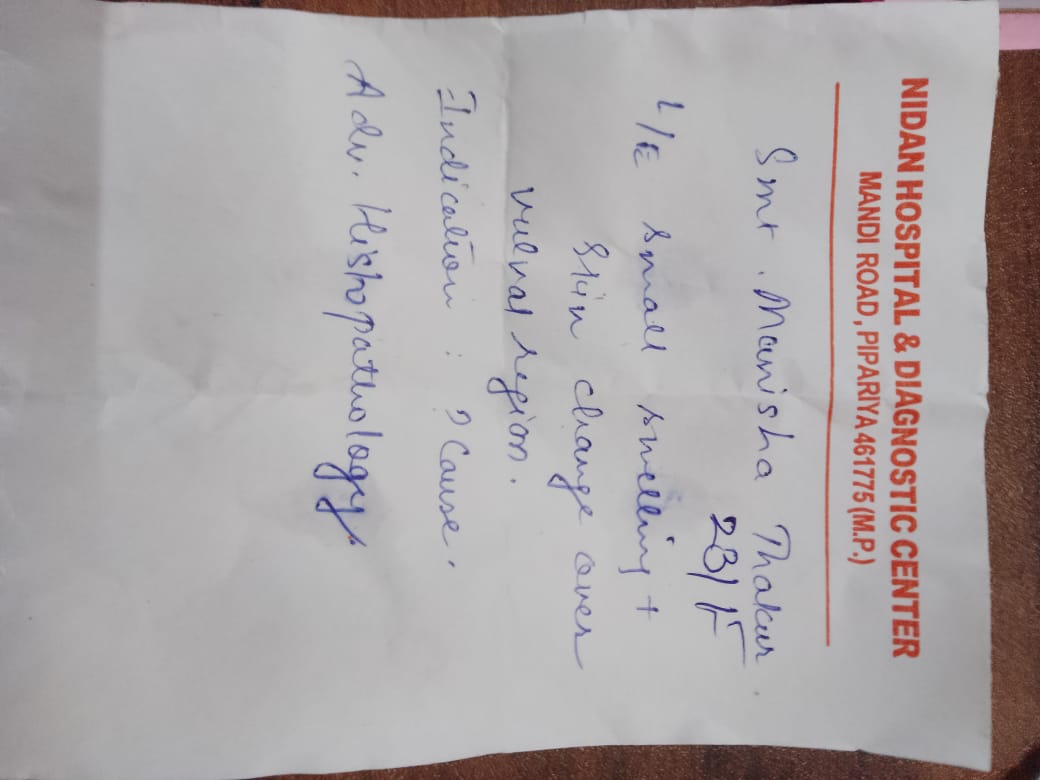 NIDAN HOSPITAL & DIAGNOSTIC CENTER
MANDI ROAD, PIPARIYA 461775 (M.P.)
Smt. Manisha Thakur.
23/F
L/E small swelling +
skin change over
vulval region.
Indication : ? Cause.
Adv. Histopathology